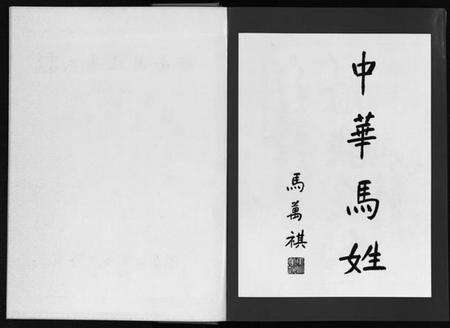 中華馬姓
馬萬祺